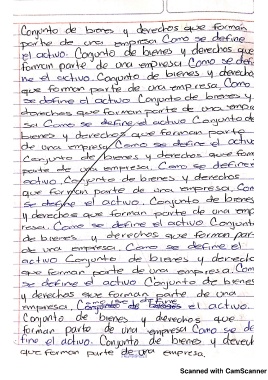 Conjunto de bienes y derechos que forman
parte de una empresa Como se define
el activo. Conjunto de bienes y derechos que
forman parte de una empresa Como se defi
ne el activo Conjunto de bienes y derechos
que forman parte de una empresa. Como
se define el activo Conjunto de bienes y
derechos que forman parte de una empre
sa Como se define el activo Conjunto de
bienes y derechos que forman parte
de una empresa Como se define el activo
Conjunto de bienes y derechos que form
parte de una empresa. Como se define el
activo Conjunto de bienes y derechos
que forman parte de una empresa, Com
se define el activo. Conjunto de bienes
y derechos que forman parte de una emp
resa. Como se define el activo Conjunt
de bienes y derechos que forman par
de una empresa. Como se define el
activo Conjunto de bienes y derech
que forman parte de una empresa. Com
se define el activo Conjunto de bienes
y derechos que forman parte de una
empresa. Como se define el activo.
Conjunto de bienes y derechos que
forman parte de una empresa Como se de
fine el activo. Conjunto de bienes y derech
que forman parte de una empresa.
Scanned with CamScanner